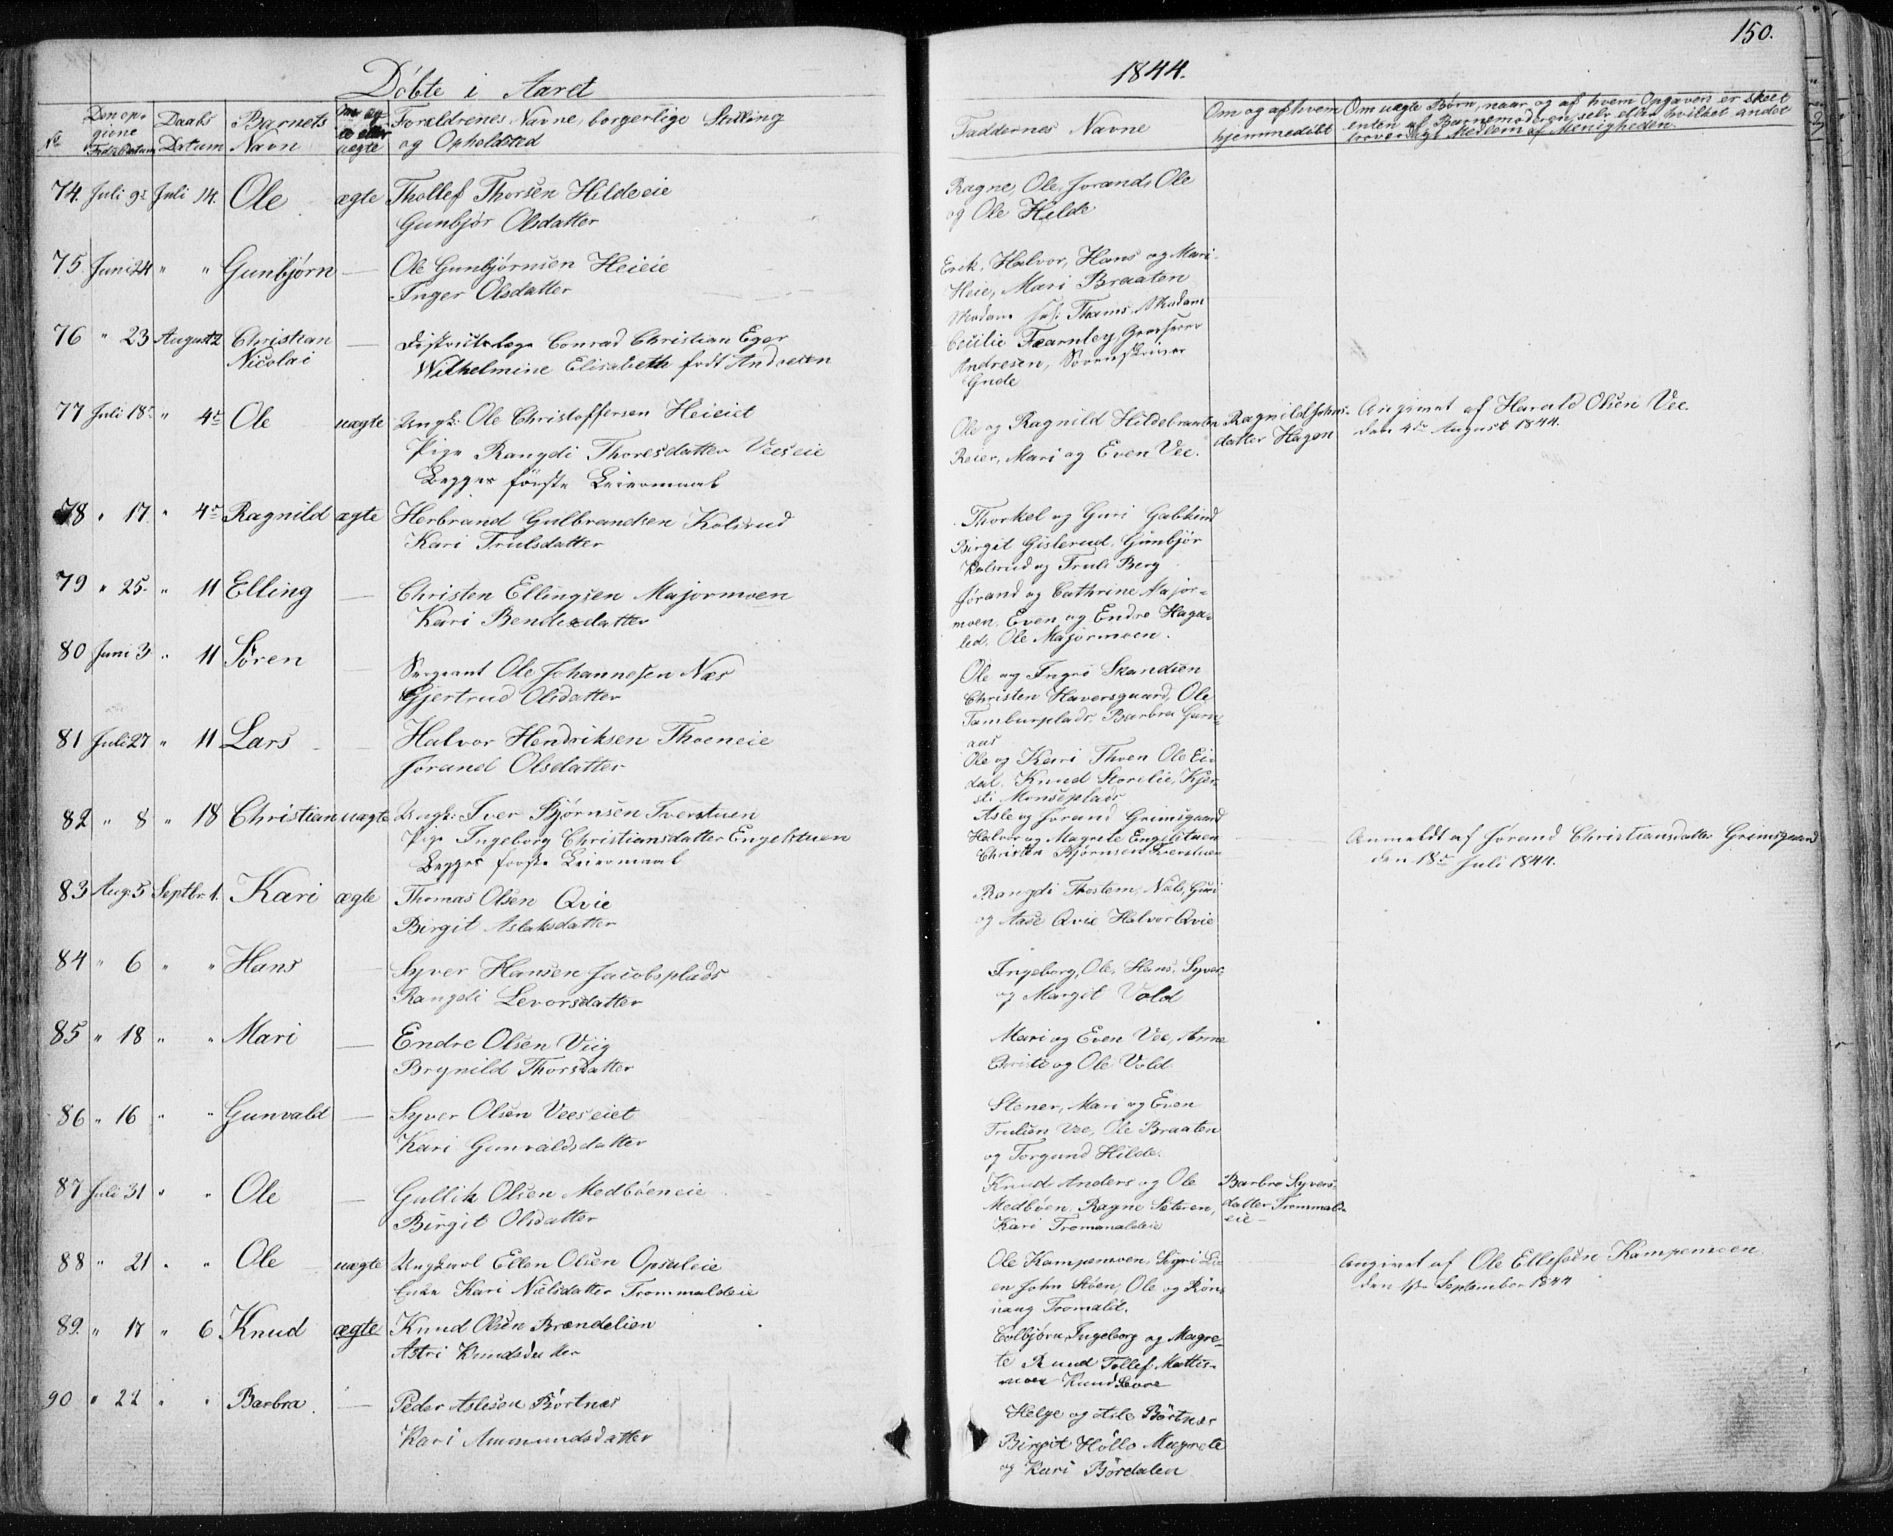 150.
Döbte i Aaret 1844.
No
Den opgivne Fødsdatum
Daabs Datum
Barnets Navn
Om ægte eller uægte
Foreldrenes Navne, borgerlige Stilling og Opholdsted
Faddernes Navne
Om og af hvem hjemmedöbt
Om uægte Børn, naar og af hvem Opgaven er skeet enten af Barnemoderen selv eller hvilket andet troværdigt Medlem af Menigheden.
74. Juli 9de Juli 14. Ole ægte Thollef Thorsen Hildeeie
Gunbjør Olsdatter
Ragne, Ole, Jorand, Ole
og Ole Hilde
75. Juni 24 " " Gunbjørn — Ole Gunbjørnsen Heieie
Inger Olsdatter
Erik, Halvor, Hans og Mari
Heie, Mari Braaten
76 " 23 August 2 Christian — Districtslæge Conrad Christian Eger
Nicolai
Wilhelmine Elisabeth født Andresen
Madam Thams, Madam
Cecilie Fearnley, Grosserer
Andresen, Sorenskriver
Gude
77 Juli 18de " 4de Ole uægte Ungk: Ole Christoffersen Heieiet
Pige Rangdi Thoresdatter Veeseie
Begges første Leiermaal
Ole og Ragnild Hildebraaten
Reier, Mari og Even Vee.
Ragnild Johnsdatter Hagen
Angivet af Harald Olsen Vee.
den 4de August 1844.
78 " 17 " 4de Ragnild ægte Herbrand Gulbrandsen Kolsrud
Kari Trulsdatter
Thorkel og Guri Gabkind
Birgit Gislerud, Gunbjör
Kolsrud og Truls Berg
79 " 25. " 11 Elling — Christen Ellingsen Majormoen
Kari Bendixdatter
Jörand og Cathrine Majormoen,
Even og Endre Hagaled,
Ole Majormoen.
80 Juni 3 " 11 Sören — Sergeant Ole Johannesen Næs
Gjertrud Olsdatter
Ole og Ingri Skandsen
Christen Haversgaard, Ole
Tamburplads, Barbra Garnaas
81 Juli 27 " 11 Lars — Halvor Hendriksen Thoeneie
Jorand Olsdatter
Ole og Kari Thoen Ole Eidal,
Knud Storelie, Kjersti
Monseplads
82 " 8 " 18 Christian uægte Ungk: Iver Bjørnsen Tverstuen
Pige Ingeborg Christiansdatter Engelstuen
Begges første Leiermaal
Asle og Jorand Grimsgaard
Halvor og Magrete Engelstuen
Christen Bjørnsen Tverstuen
Anmeldt af Jorand Christiansdatter Grimsgaard
den 18de Juli 1844.
83 Aug. 5 Septbr. 1. Kari ægte Thomas Olsen Qvie
Birgit Aslaksdatter
Rangdi Thostem, Niels, Guri
og Aase Qvie Halvor Qvie
84 " 6 " " Hans — Syver Hansen Jacobsplads
Rangdi Levorsdatter
Ingeborg, Ole, Hans, Syver
og Margit Vold
85 " 18 " " Mari — Endre Olsen Viig
Brynild Thorsdatter
Mari og Even Vee, Anne
Christi og Ole Vold
86 " 16 " " Gunvald — Syver Olsen Veeseiet
Kari Gunvaldsdatter
Stener, Mari og Even
Trulsen Vee, Ole Braaten
og Torgund Hilde.
87 Juli 31 " " Ole — Gullik Olsen Medböeneie
Birgit Olsdatter
Knud Anders og Ole
Medböen, Ragne Sateren,
Kari Trommaldeie
Barbro Syversdatter Trommaldeie —
88 " 21 " " Ole uægte Ungkarl Ellen Olsen Opsaleie
Enke Kari Nielsdatter Trommaldeie
Ole Kampemoen, Sigri Lien
John Støen, Ole og Rönnaug
Tromald.
Angivet af Ole Ellefsen Kampemoen
den 1ste September 1844
89. " 17 " 6 Knud ægte Knud Olsen Brændelien
Astri Knudsdatter
Eulbjørn, Ingeborg og Magrete
Ruud Tollef Mattismoen
Knud Sevre
90 " 22 " " Barbra. — Peder Aslesen Börtnæs
Kari Ammundsdatter
Helge og Asle Börtnæs
Birgit Höllo Magrete
og Kari Bördalen